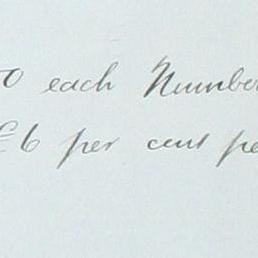 0 each Number
£6 per cent pe